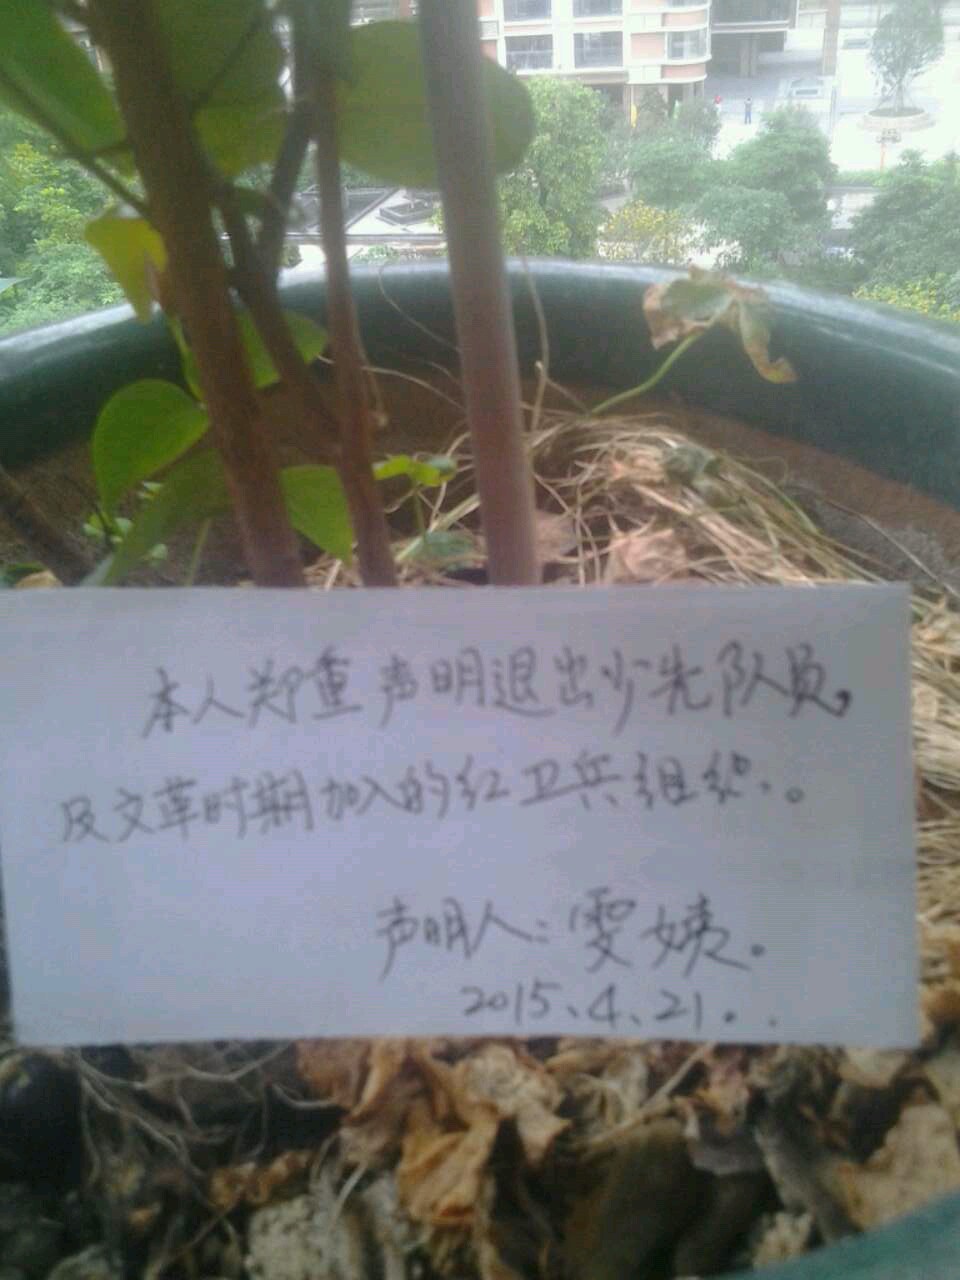 本人郑重声明退出少先队员,
及文革时期加入的红卫兵组织.。
声明人:雯姨。
2015、4、21。.